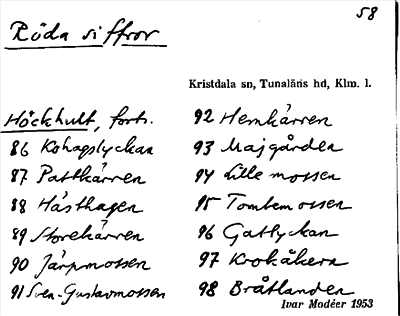 58
Röda siffror
Kristdala sn, Tunaläns hd, Klm. l.
Höckhult, forts.
86 Kohagslyckan
87 Pattkärren
88 Hästhagen
89 Storekärren
90 Järpmossen
91 Sven-Gustavmossen
92 Hemkärren
93 Majgården
94 Lille mossen
95 Tomtemossen
96 Gatlyckan
97 Krokåkern
98 Bråtlanden
Ivar Modéer 1953